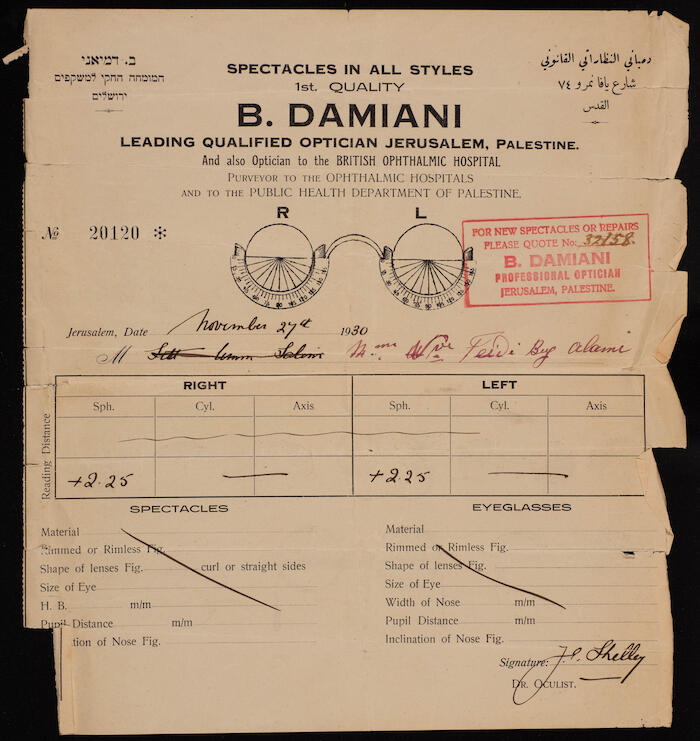 ב. דמיאני
המומחה החקי למשקפים
ירושלים
SPECTACLES IN ALL STYLES
1st. QUALITY
B. DAMIANI
LEADING QUALIFIED OPTICIAN JERUSALEM, PALESTINE.
And also Optician to the BRITISH OPHTHALMIC HOSPITAL
PURVEYOR TO THE OPHTHALMIC HOSPITALS
AND TO THE PUBLIC HEALTH DEPARTMENT OF PALESTINE.
دمياني النظاراتي القانوني
شارع يافا نمرو ٧٤
القدس
№ 20120 *
R L
FOR NEW SPECTACLES OR REPAIRS
PLEASE QUOTE No: 32158.
B. DAMIANI
PROFESSIONAL OPTICIAN
JERUSALEM, PALESTINE.
Jerusalem, Date November 27th 1930
M Sitt Umm Salim Mme Wve Feidi Bey Alami
RIGHT LEFT
Sph. Cyl. Axis Sph. Cyl. Axis
Reading Distance
+2.25 — +2.25 —
SPECTACLES
Material
Rimmed or Rimless Fig.
Shape of lenses Fig. curl or straight sides
Size of Eye
H. B. m/m
Pupil Distance m/m
tion of Nose Fig.
EYEGLASSES
Material
Rimmed or Rimless Fig.
Shape of lenses Fig.
Size of Eye
Width of Nose m/m
Pupil Distance m/m
Inclination of Nose Fig.
Signature: Shelley
DR. OCULIST.